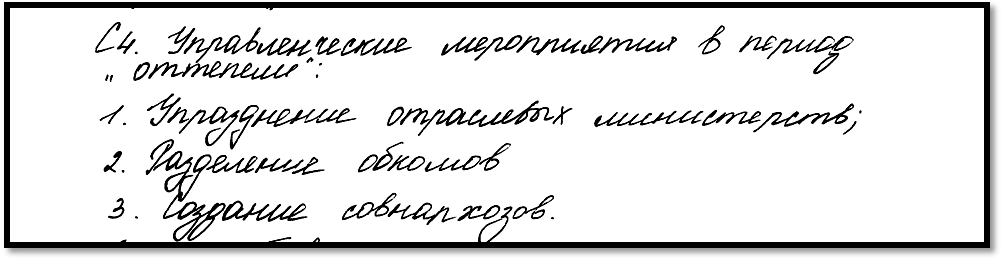 С4. Управленческие мероприятия в период
„оттепели“:
1. Упразднение отраслевых министерств;
2. Разделение обкомов
3. Создание совнархозов.